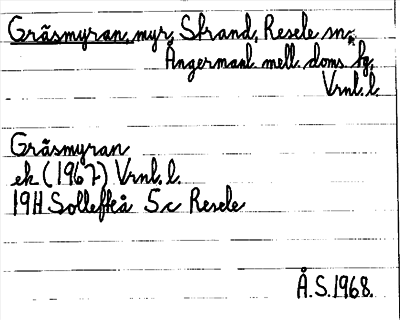 Gräsmyran, myr, Strand, Resele sn,
Ångermanl. mell. doms. fg.
Vrnl. l.
Gräsmyran
ek (1967) Vrnl. l.
19H Sollefteå 5c Resele
Å.S. 1968.